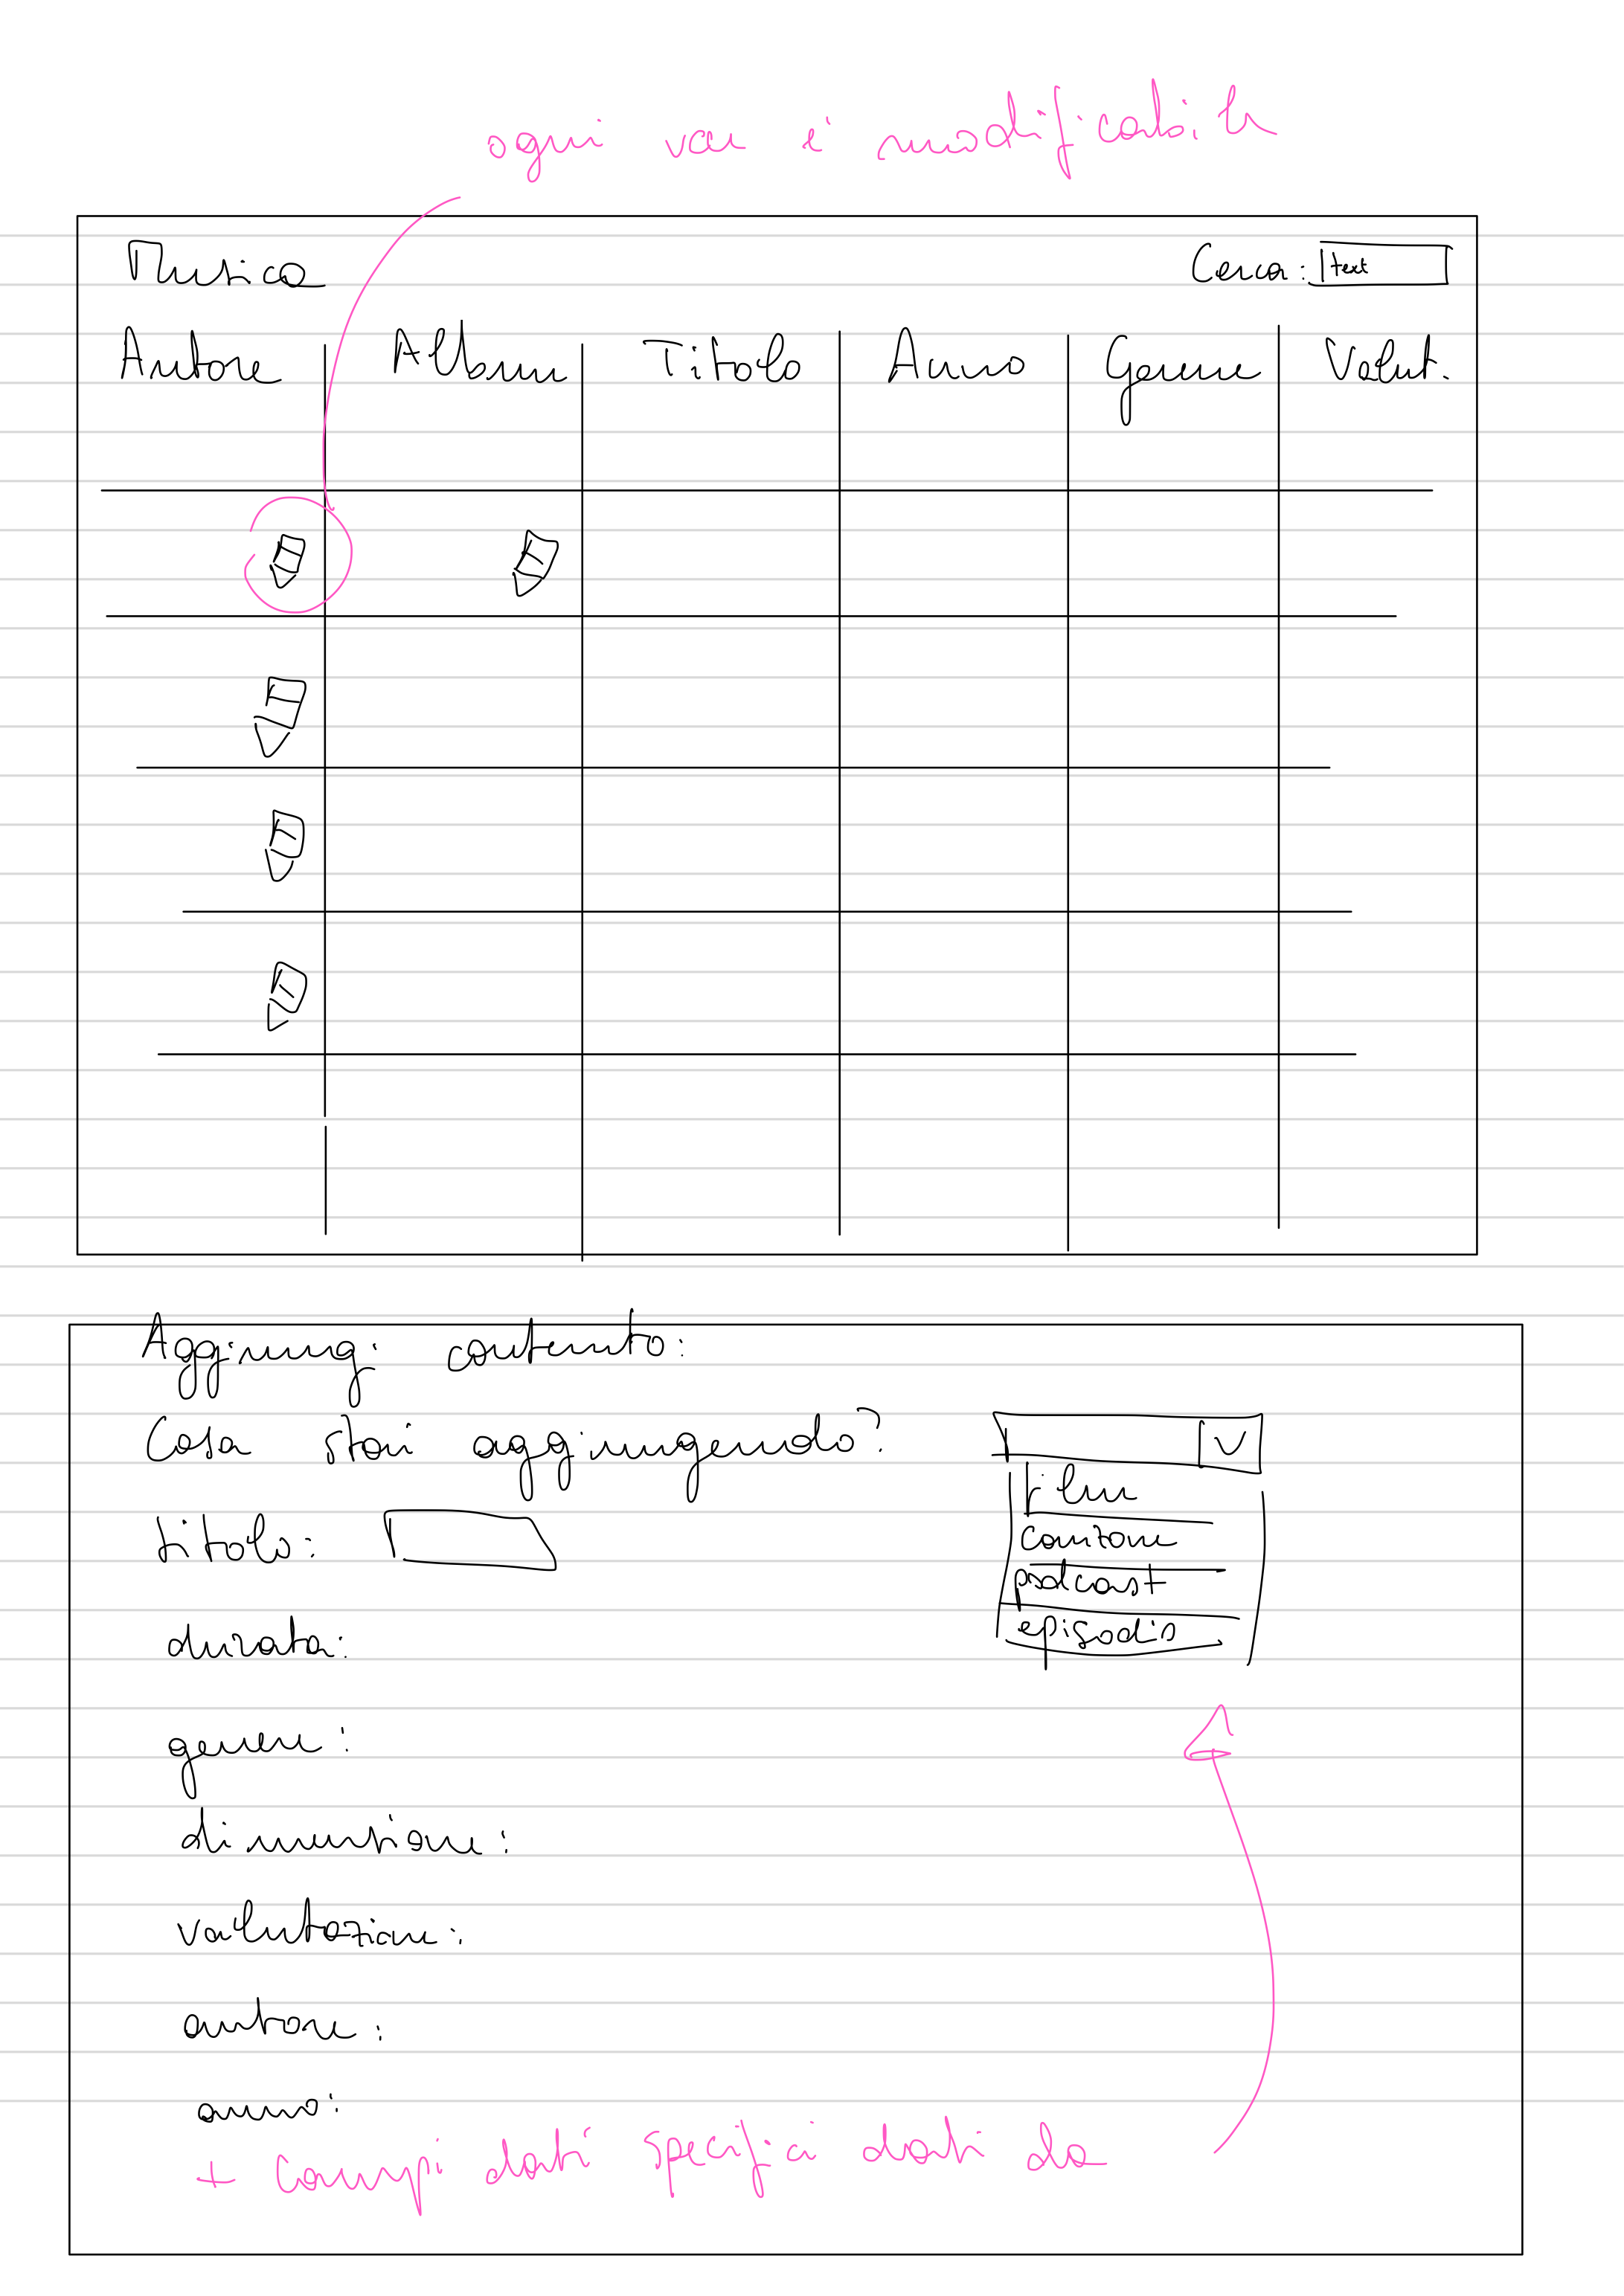 ogni var è modificabile
Musica Cerca: text
Autore Album Titolo Anno Genere Valut.
Aggiungi contenuto:
Cosa stai aggiungendo?
film
titolo:
canzone
podcast
durata:
episodio
genere:
dimensione:
valutazione:
autore:
anno:
+ campi dati specifici dati da